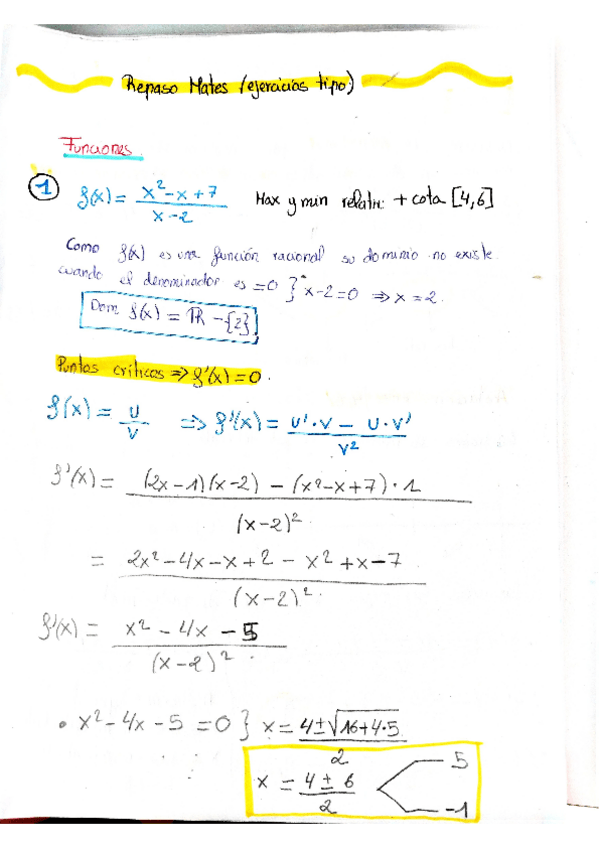 Repaso Mates (ejercicios tipo)
Funciones.
1 f(x) = x²-x+7 / x-2 Max y min relativ: + cota [4,6]
Como f(x) es una función racional su dominio no existe
cuando el denominador es =0 } x-2=0 ⇒ x=2.
Dom f(x) = ℝ - {2}
Puntos críticos ⇒ f'(x)=0.
f(x) = u/v ⇒ f'(x) = u'·v - u·v' / v²
f'(x) = (2x-1)(x-2) - (x²-x+7)·1 / (x-2)²
= 2x²-4x-x+2-x²+x-7 / (x-2)²
f'(x) = x²-4x-5 / (x-2)²
• x²-4x-5 =0 } x = 4±√16+4·5 / 2
x = 4±6 / 2 5
-1